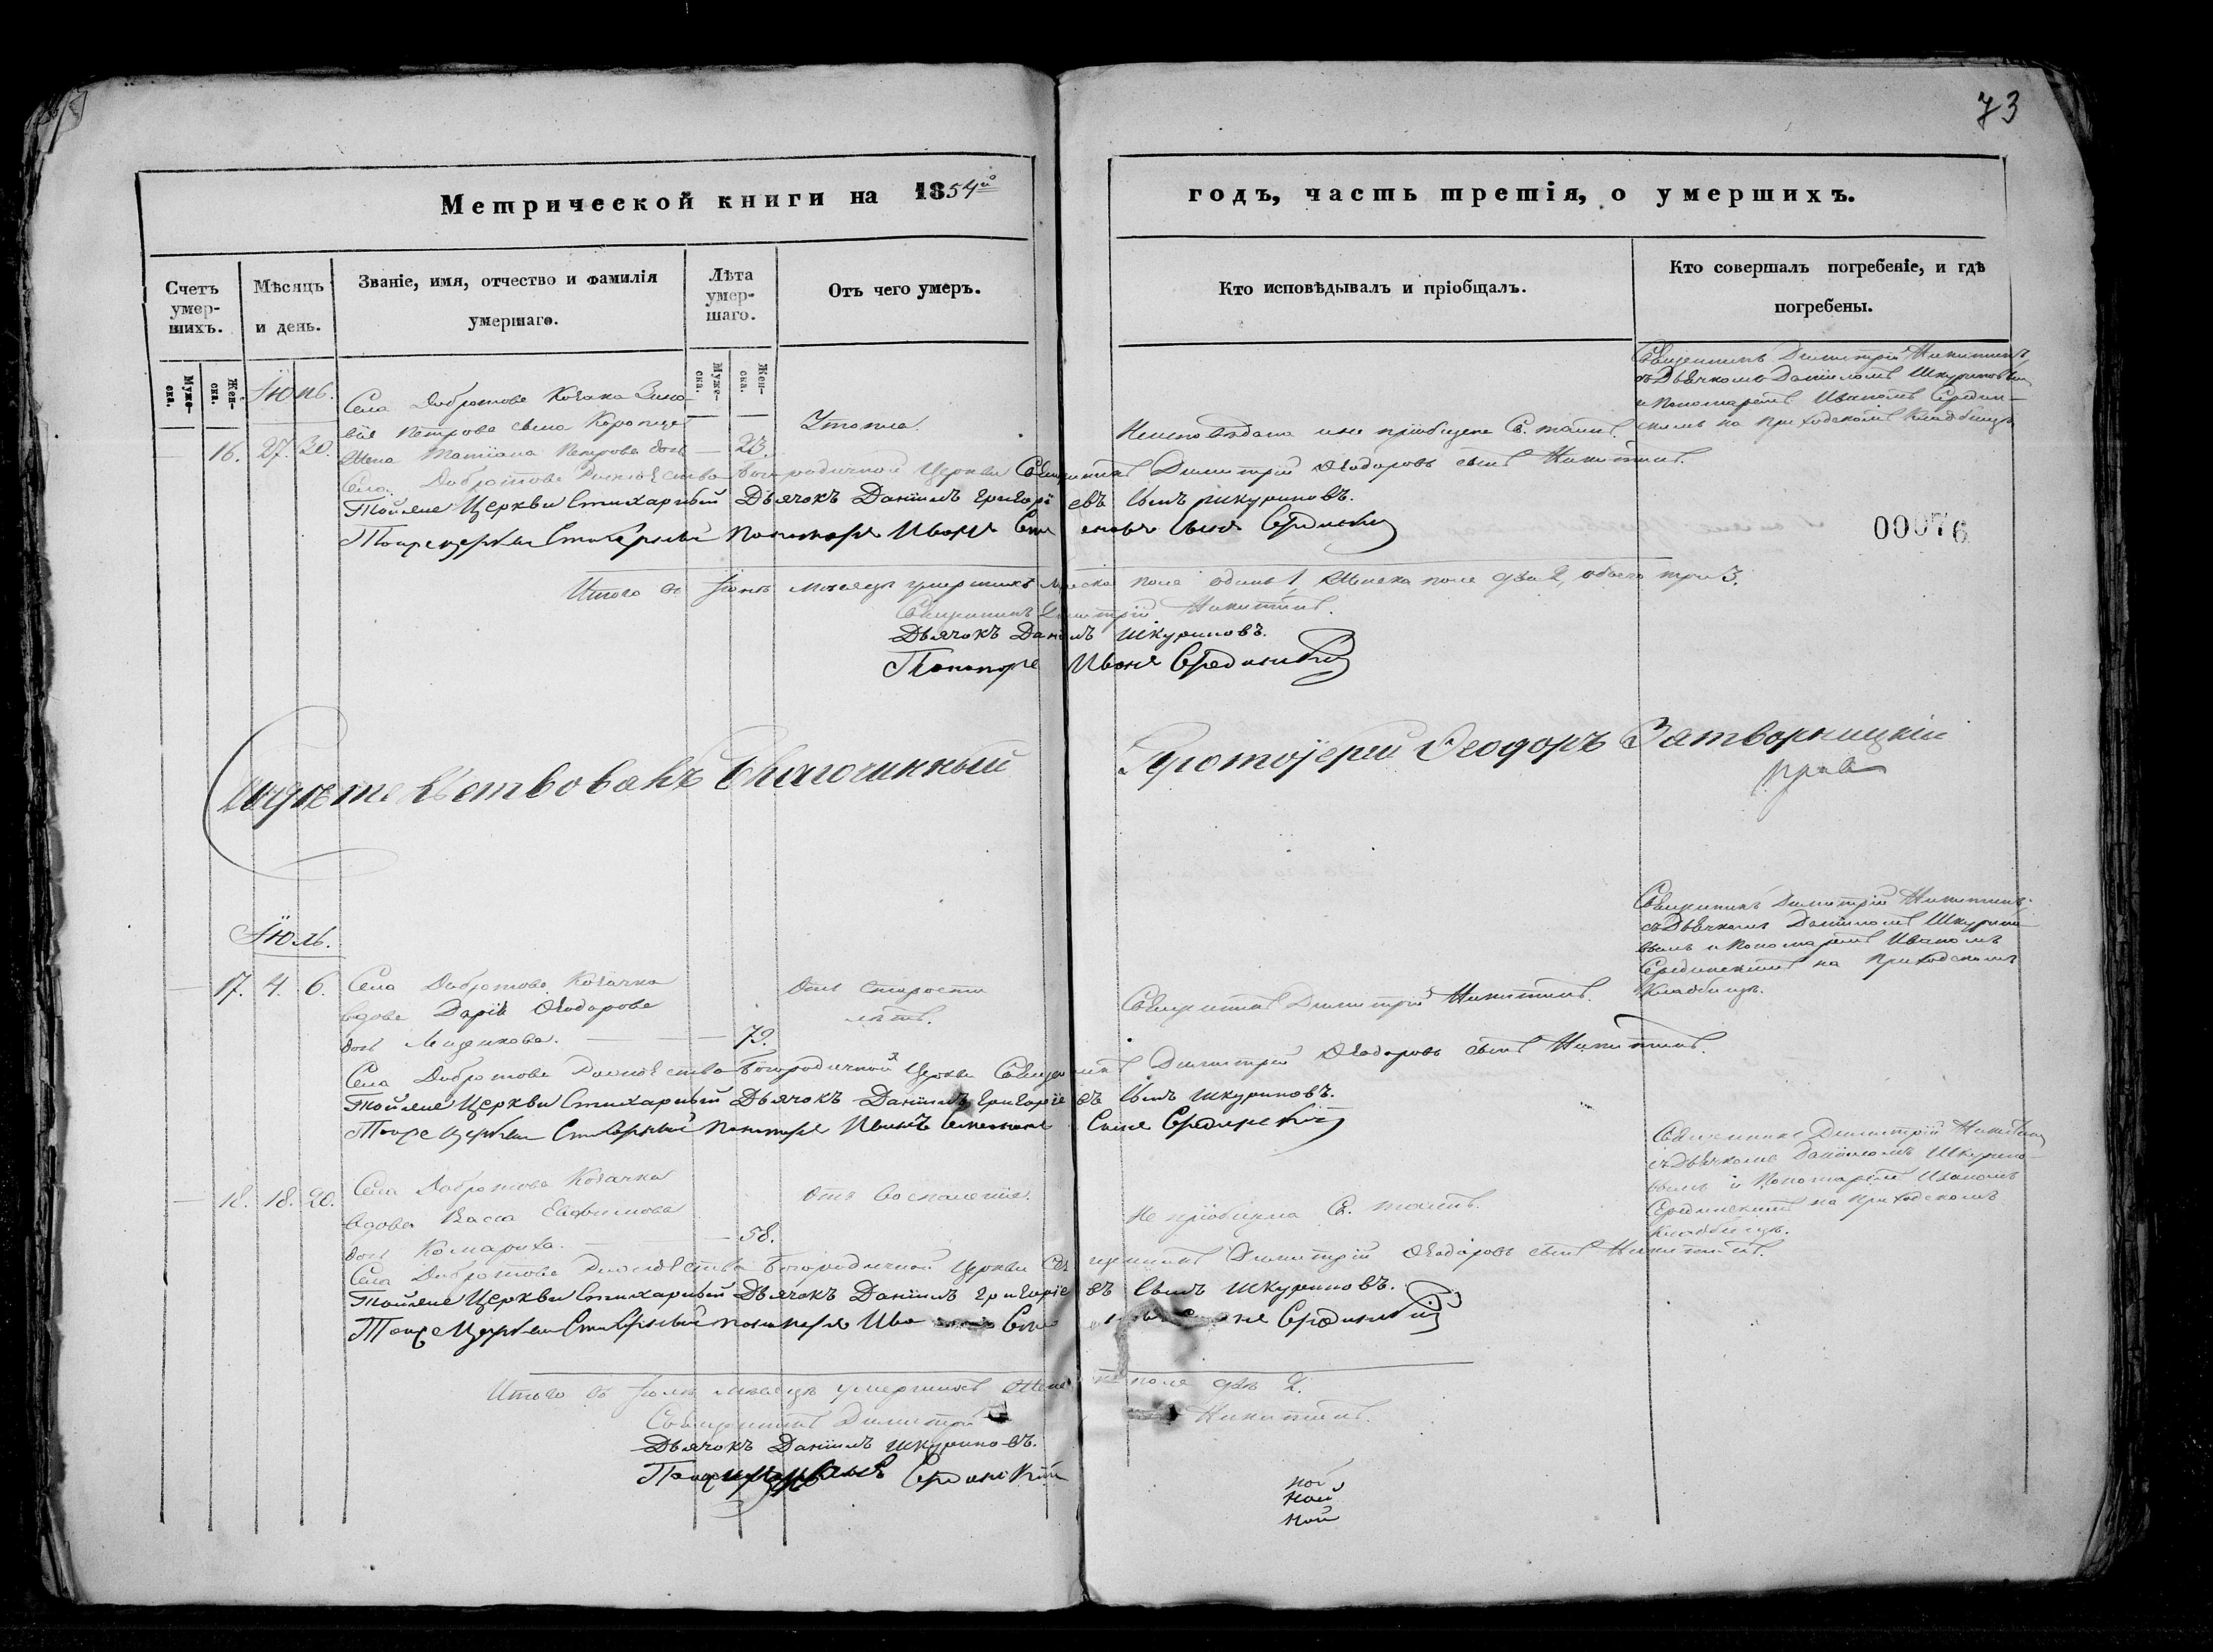 73
Метрической книги на 1854й
годъ, часть третія, о умершихъ.
Счетъ умер-шихъ.
Мѣсяцъ и день.
Званіе, имя, отчество и фамилія умершаго.
Лѣта умер-шаго.
Отъ чего умеръ.
Кто исповѣдывалъ и пріобщалъ.
Кто совершалъ погребеніе, и гдѣ погребены.
Муже-ска.
Жен-ска.
Муже-ска.
Жен-ска.
Іюнь.
16. 27. 30.
Села Добротова Козака Зино-
вія Петрова сына
жена Татіана Петрова дочь
23.
Утопла
Неисповѣдана и не пріобщена Св. таинъ.
Священникъ Димитрій Никитинъ
съ Дьячкомъ Даніиломъ Шкуриновымъ
и Пономаремъ Иваномъ Средин-
скимъ на приходскомъ кладбищѣ
Села Добротова Рождества Богородичной Церкви Священникъ Димитрій Ѳеодоровъ сынъ Никитинъ.
Тойже Церкви Стихарный Дьячокъ Даніилъ Григоріевъ сынъ Шкуриновъ.
Тойже церкви Стихарный Пономарь Иванъ Семеновъ сынъ Срединскій
00076
Итого въ Іюнѣ мѣсяцѣ умершихъ мужеска пола одинъ 1, женска пола два 2, обоего три 3.
Священникъ Димитрій Никитинъ.
Дьячокъ Даніилъ Шкуриновъ.
Пономарь Иванъ Срединскій
Свидѣтельствовалъ Благочинный Протоіерей Ѳеодоръ Затворницкій
Іюль.
17. 4. 6.
Села Добротова Козачка
вдова Дарія Ѳеодорова
дочь
79.
Отъ старости
лѣтъ.
Священникъ Димитрій Никитинъ.
Священникъ Димитрій Никитинъ
съ Дьячкомъ Даніиломъ Шкурино-
вымъ и Пономаремъ Иваномъ
Срединскимъ на приходскомъ
кладбищѣ.
Села Добротова Рождества Богородичной Церкви Священникъ Димитрій Ѳеодоровъ сынъ Никитинъ.
Тойже Церкви Стихарный Дьячокъ Даніилъ Григоріевъ сынъ Шкуриновъ.
Тойже Церкви Стихарный Пономарь Иванъ Семеновъ сынъ Срединскій
18. 18. 20.
Села Добротова Козачка
вдова Васса Евфимова
дочь Комариха.
58.
Отъ воспаленія.
Не пріобщена Св. таинъ.
Священникъ Димитрій Никитинъ
съ Дьячкомъ Даніиломъ Шкурино-
вымъ и Пономаремъ Иваномъ
Срединскимъ на приходскомъ
кладбищѣ.
Села Добротова Рождества Богородичной Церкви Священникъ Димитрій Ѳеодоровъ сынъ Никитинъ.
Тойже Церкви Стихарный Дьячокъ Даніилъ Григоріевъ сынъ Шкуриновъ.
Тойже Церкви Стихарный пономарь Срединскій
Итого въ Іюлѣ мѣсяцѣ умершихъ пола двѣ 2.
Священникъ Димитрій Никитинъ.
Дьячокъ Даніилъ Шкуриновъ.
Срединскій
ной
ной
ной